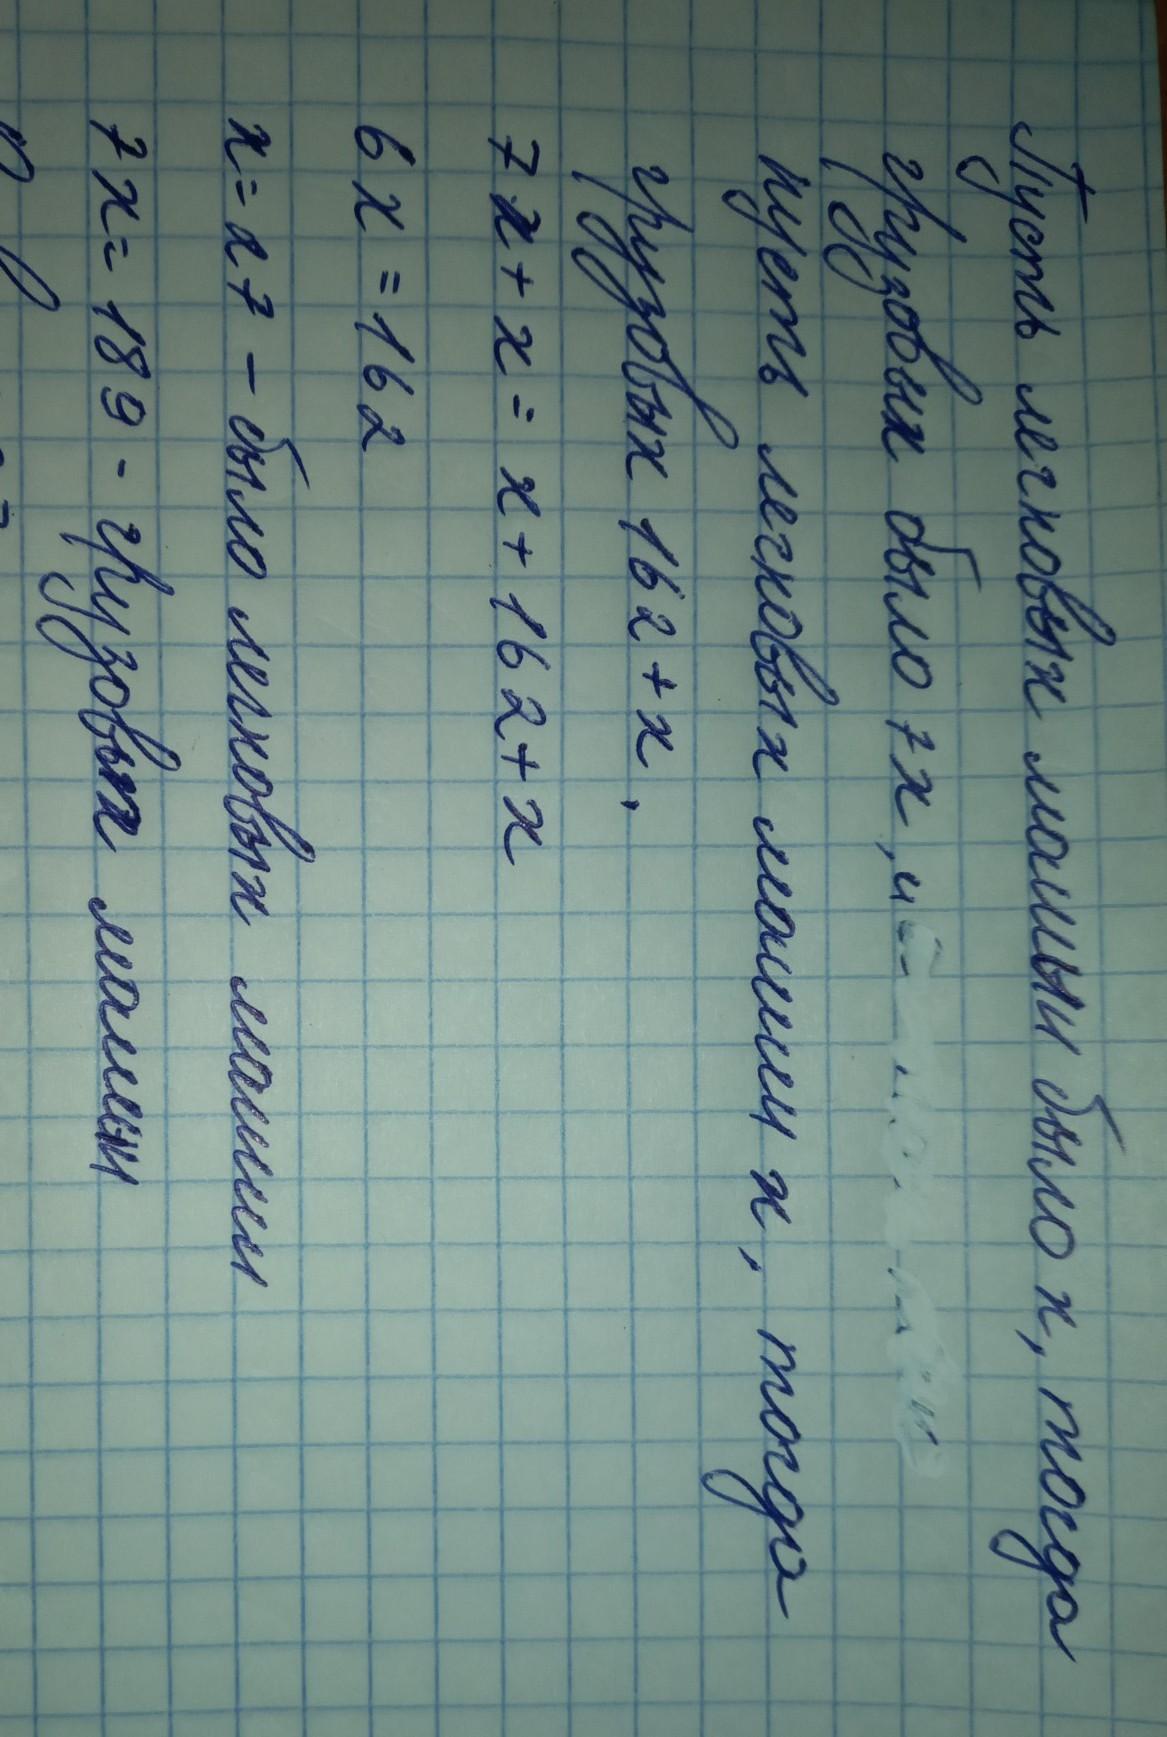 Пусть легковых машын было x, тогда
грузовых было 7x, и
пусть легковых машин x, тогда
грузовых 162+x,
7x+x=x+162+x
6x=162
x=27 - было легковых машин
7x=189 - грузовых машин